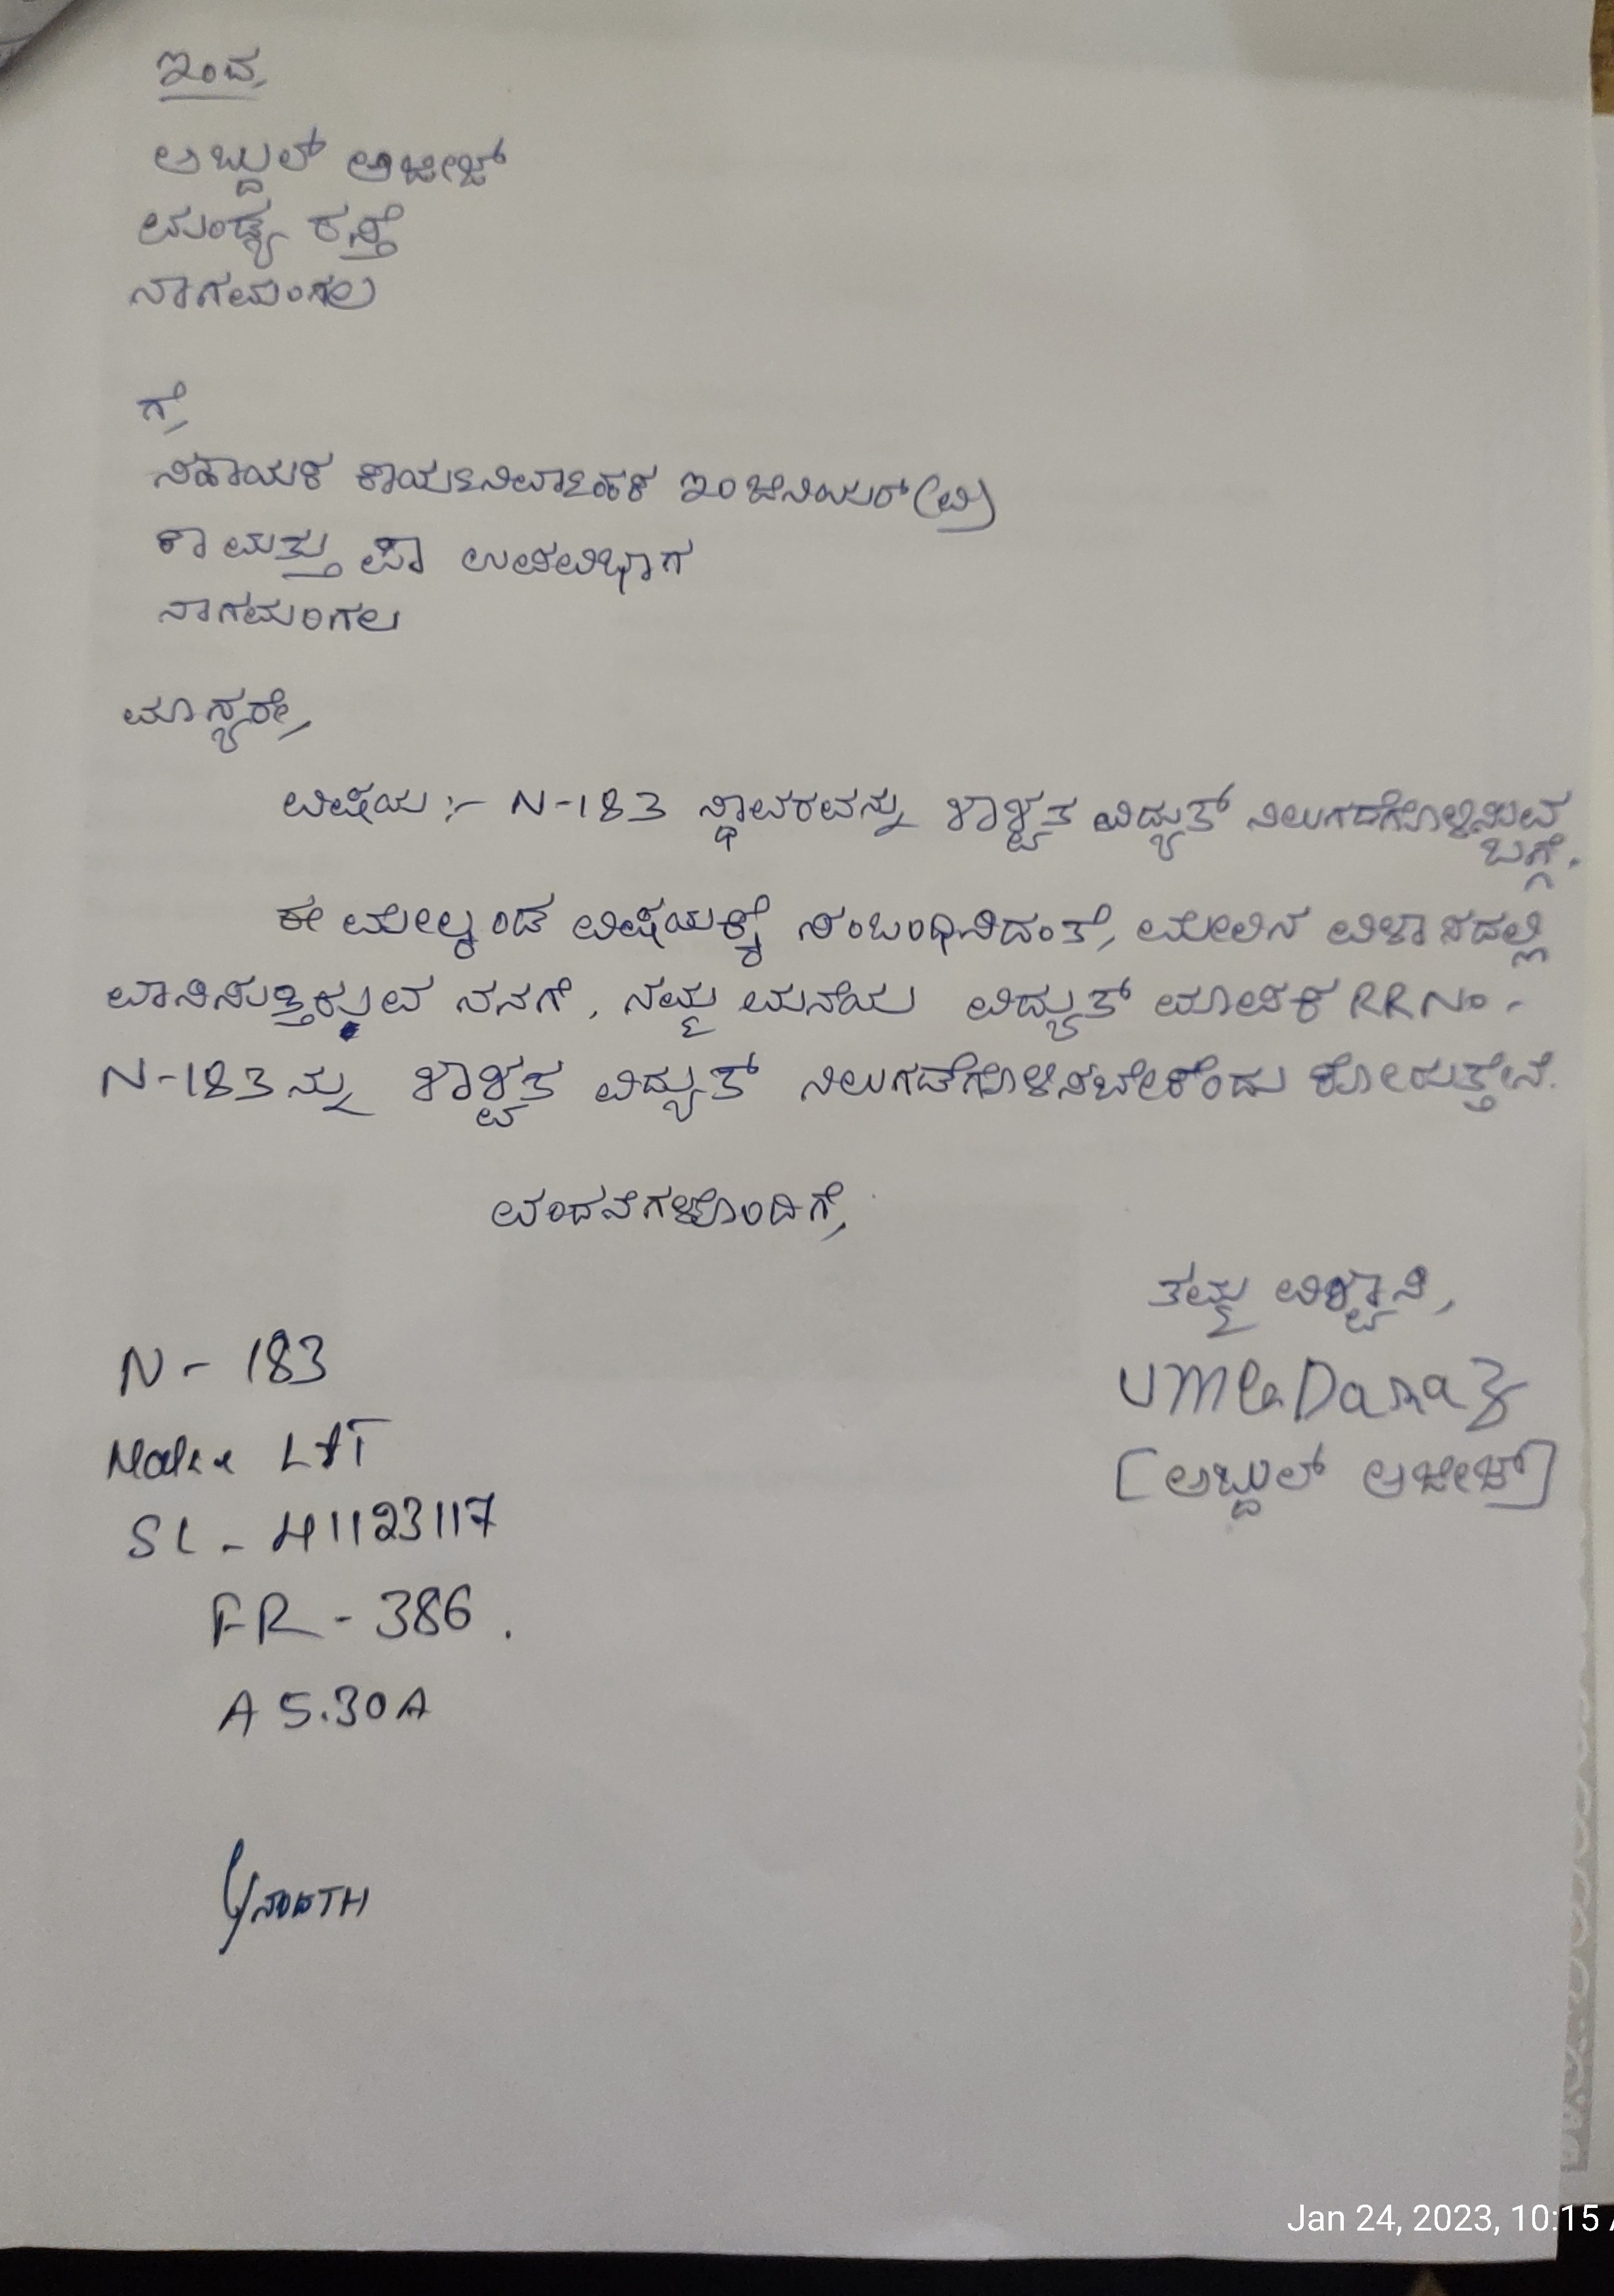 ಇಂದ,
ಅಬ್ದುಲ್ ಅಜೀಜ್
ಮಂಡ್ಯ ರಸ್ತೆ
ನಾಗಮಂಗಲ
ಗೆ,
ಸಹಾಯಕ ಕಾರ್ಯನಿರ್ವಾಹಕ ಇಂಜಿನಿಯರ್ (ವಿ)
ಕಾ ಮತ್ತು ಪಾ ಉಪವಿಭಾಗ
ನಾಗಮಂಗಲ
ಮಾನ್ಯರೇ,
ವಿಷಯ :- N-183 ಸ್ಥಾವರವನ್ನು ಶಾಶ್ವತ ವಿದ್ಯುತ್ ನಿಲುಗಡೆಗೊಳಿಸುವ
ಬಗ್ಗೆ.
ಈ ಮೇಲ್ಕಂಡ ವಿಷಯಕ್ಕೆ ಸಂಬಂಧಿಸಿದಂತೆ, ಮೇಲಿನ ವಿಳಾಸದಲ್ಲಿ
ವಾಸಿಸುತ್ತಿರುವ ನನಗೆ, ನಮ್ಮ ಮನೆಯ ವಿದ್ಯುತ್ ಮಾಪಕ RR No -
N-183 ನ್ನು ಶಾಶ್ವತ ವಿದ್ಯುತ್ ನಿಲುಗಡೆಗೊಳಿಸಬೇಕೆಂದು ಕೋರುತ್ತೇನೆ.
ವಂದನೆಗಳೊಂದಿಗೆ,
ತಮ್ಮ ವಿಶ್ವಾಸಿ,
[ಅಬ್ದುಲ್ ಅಜೀಜ್]
N - 183
Make L&T
SL - 41123117
FR - 386 .
A 5.30A
Jan 24, 2023, 10:15